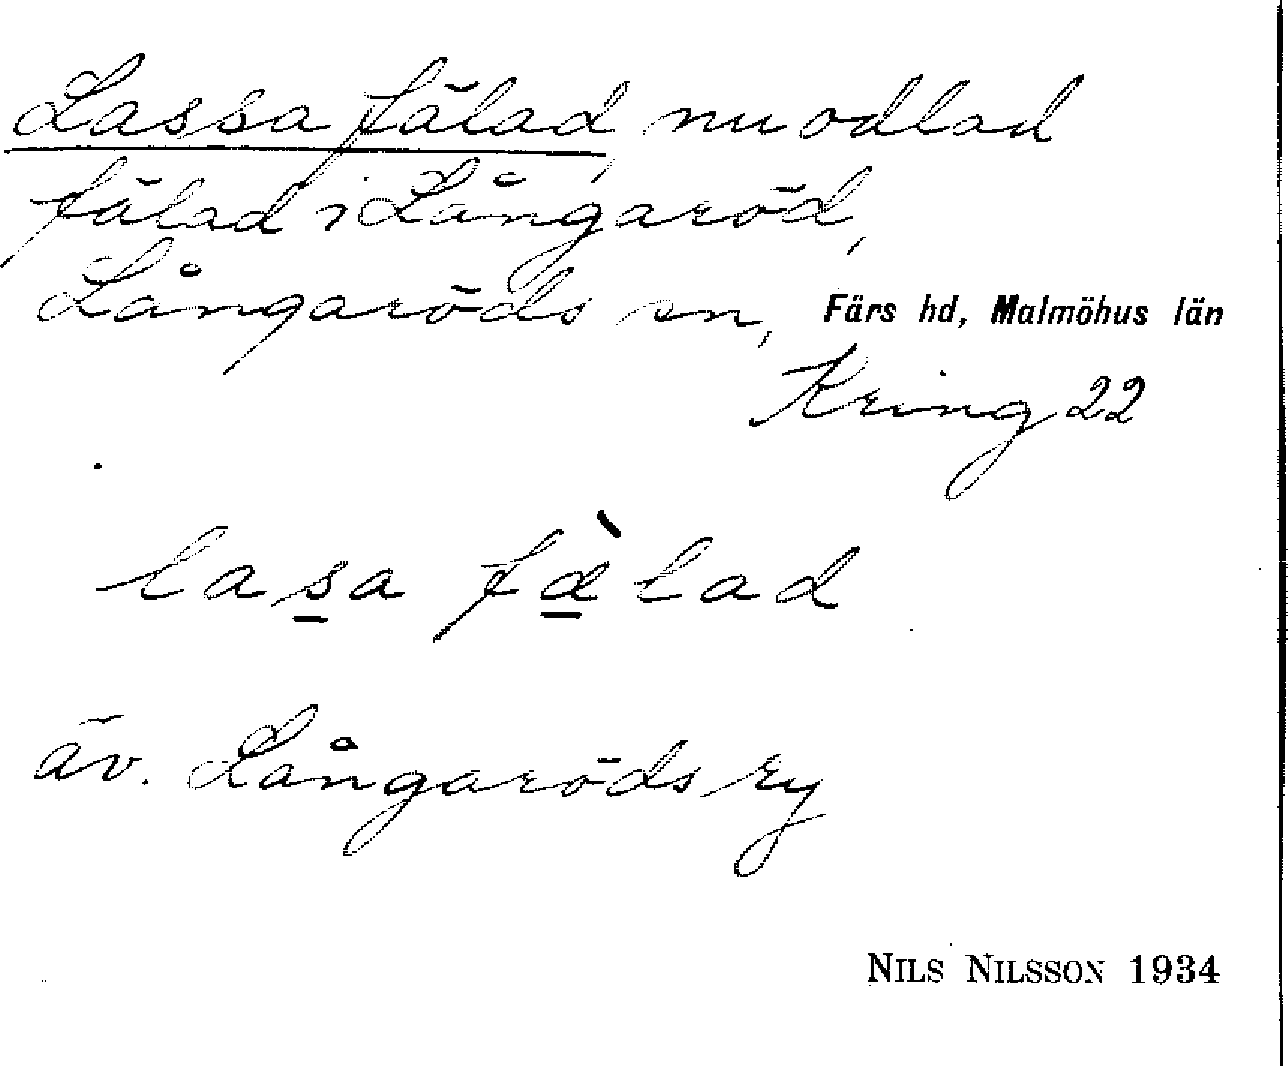 Lassa fälad, nu odlad
fälad i Långaröd,
Långaröds sn, Färs hd, Malmöhus län
Kring 22
lasa fæ̀lad
äv. Långaröds ry
NILS NILSSON 1934